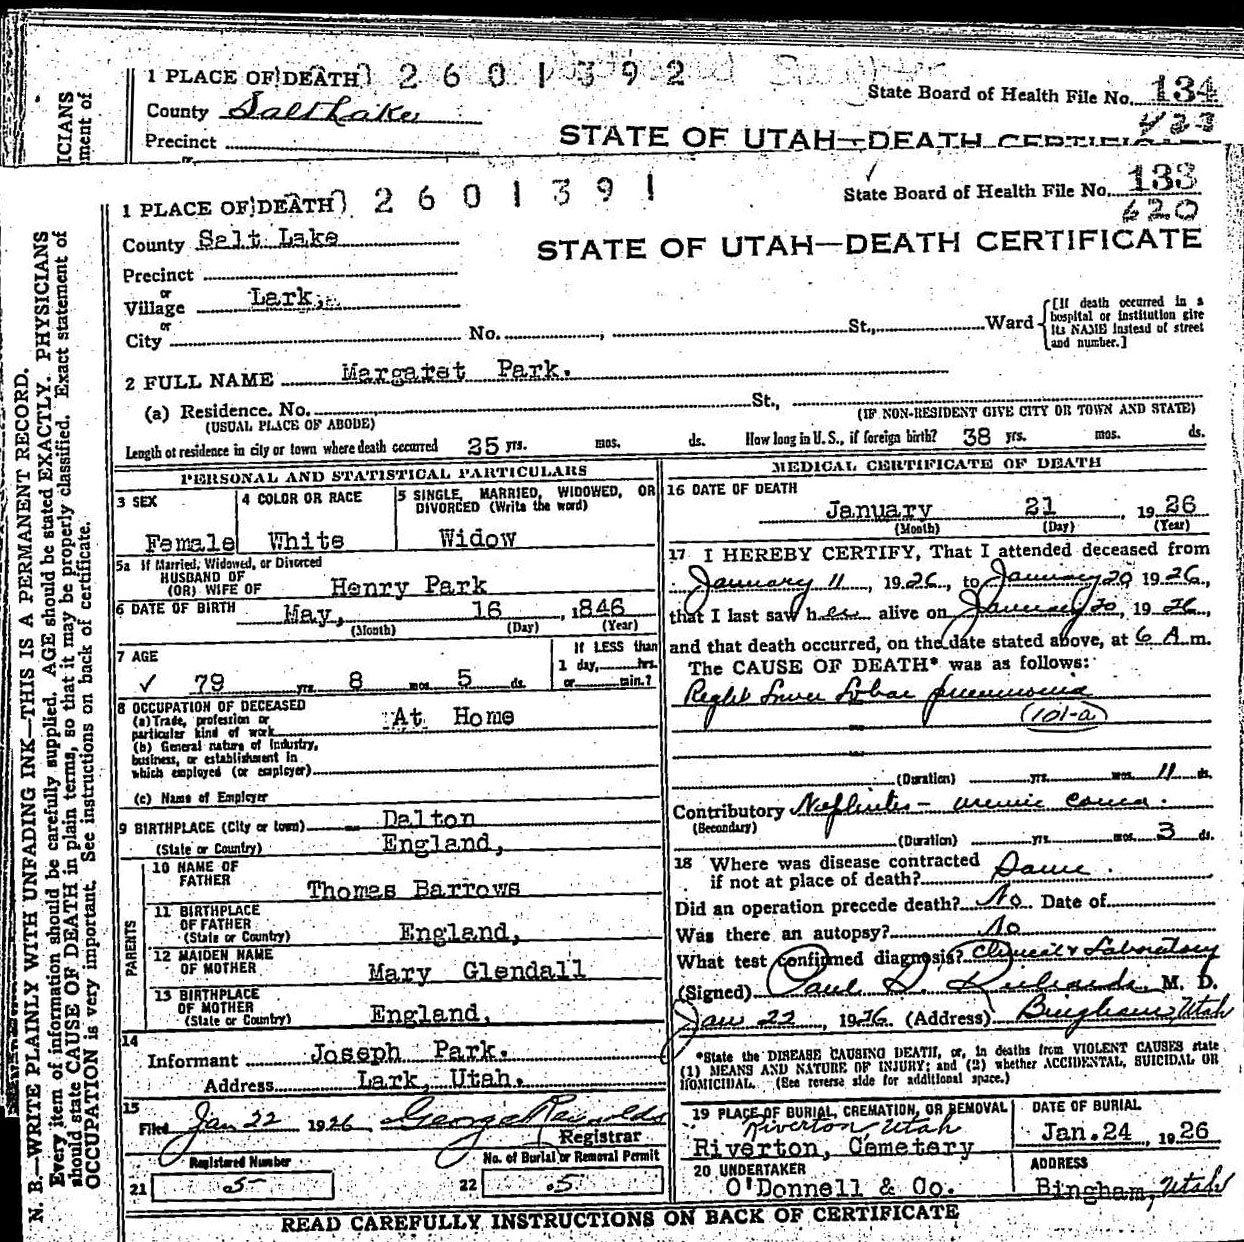 1 PLACE OF DEATH 2601392
State Board of Health File No. 134
County Salt Lake
423
Precinct
STATE OF UTAH—DEATH CERTIFICATE
or
ICIANS
ment of
1 PLACE OF DEATH 2601391
State Board of Health File No. 133
620
County Salt Lake
STATE OF UTAH—DEATH CERTIFICATE
Precinct
or
Village Lark,
or
City No. , St., Ward
[If death occurred in a hospital or institution give its NAME instead of street and number.]
2 FULL NAME Margaret Park.
(a) Residence. No. St.,
(USUAL PLACE OF ABODE) (IF NON-RESIDENT GIVE CITY OR TOWN AND STATE)
Length of residence in city or town where death occurred 25 yrs. mos. ds. How long in U. S., if foreign birth? 38 yrs. mos. ds.
PERSONAL AND STATISTICAL PARTICULARS
3 SEX
Female
4 COLOR OR RACE
White
5 SINGLE, MARRIED, WIDOWED, OR
DIVORCED (Write the word)
Widow
5a If Married, Widowed, or Divorced
HUSBAND OF
(OR) WIFE OF Henry Park
6 DATE OF BIRTH May, 16 , 1846
(Month) (Day) (Year)
7 AGE
✓ 79 yrs 8 mos 5 ds.
If LESS than
1 day, hrs.
or min.?
8 OCCUPATION OF DECEASED
(a) Trade, profession or
particular kind of work At Home
(b) General nature of Industry,
business, or establishment in
which employed (or employer)
(c) Name of Employer
9 BIRTHPLACE (City or town) Dalton
(State or Country) England,
PARENTS
10 NAME OF
FATHER Thomas Barrows
11 BIRTHPLACE
OF FATHER
(State or Country) England,
12 MAIDEN NAME
OF MOTHER Mary Glendall
13 BIRTHPLACE
OF MOTHER
(State or Country) England,
14
Informant Joseph Park.
Address Lark, Utah.
15
Filed Jan 22 1926 George Reynolds
Registrar
Registered Number
21 5
No. of Burial or Removal Permit
22 .5
MEDICAL CERTIFICATE OF DEATH
16 DATE OF DEATH
January 21 , 1926
(Month) (Day) (Year)
17 I HEREBY CERTIFY, That I attended deceased from
January 11, 1926, to January 20 1926,
that I last saw her alive on January 20, 1926,
and that death occurred, on the date stated above, at 6 A m.
The CAUSE OF DEATH* was as follows:
Right Lower Lobar pneumonia
(101-a)
(Duration) yrs. mos. 11 ds.
Contributory Nephritis - uremic coma.
(Secondary)
(Duration) yrs. mos. 3 ds.
18 Where was disease contracted
if not at place of death? Same.
Did an operation precede death? No Date of
Was there an autopsy? No
What test confirmed diagnosis? Clinical & Laboratory
(Signed) Paul S. Richards, M. D.
Jan 22, 1926 (Address) Bingham, Utah
*State the DISEASE CAUSING DEATH, or, in deaths from VIOLENT CAUSES state
(1) MEANS AND NATURE OF INJURY; and (2) whether ACCIDENTAL, SUICIDAL OR
HOMICIDAL. (See reverse side for additional space.)
19 PLACE OF BURIAL, CREMATION, OR REMOVAL
Riverton Utah
Riverton, Cemetery
DATE OF BURIAL
Jan. 24, 1926
20 UNDERTAKER
O'Donnell & Co.
ADDRESS
Bingham, Utah
READ CAREFULLY INSTRUCTIONS ON BACK OF CERTIFICATE
N. B.—WRITE PLAINLY WITH UNFADING INK—THIS IS A PERMANENT RECORD.
Every item of information should be carefully supplied. AGE should be stated EXACTLY. PHYSICIANS
should state CAUSE OF DEATH in plain terms, so that it may be properly classified. Exact statement of
OCCUPATION is very important. See instructions on back of certificate.